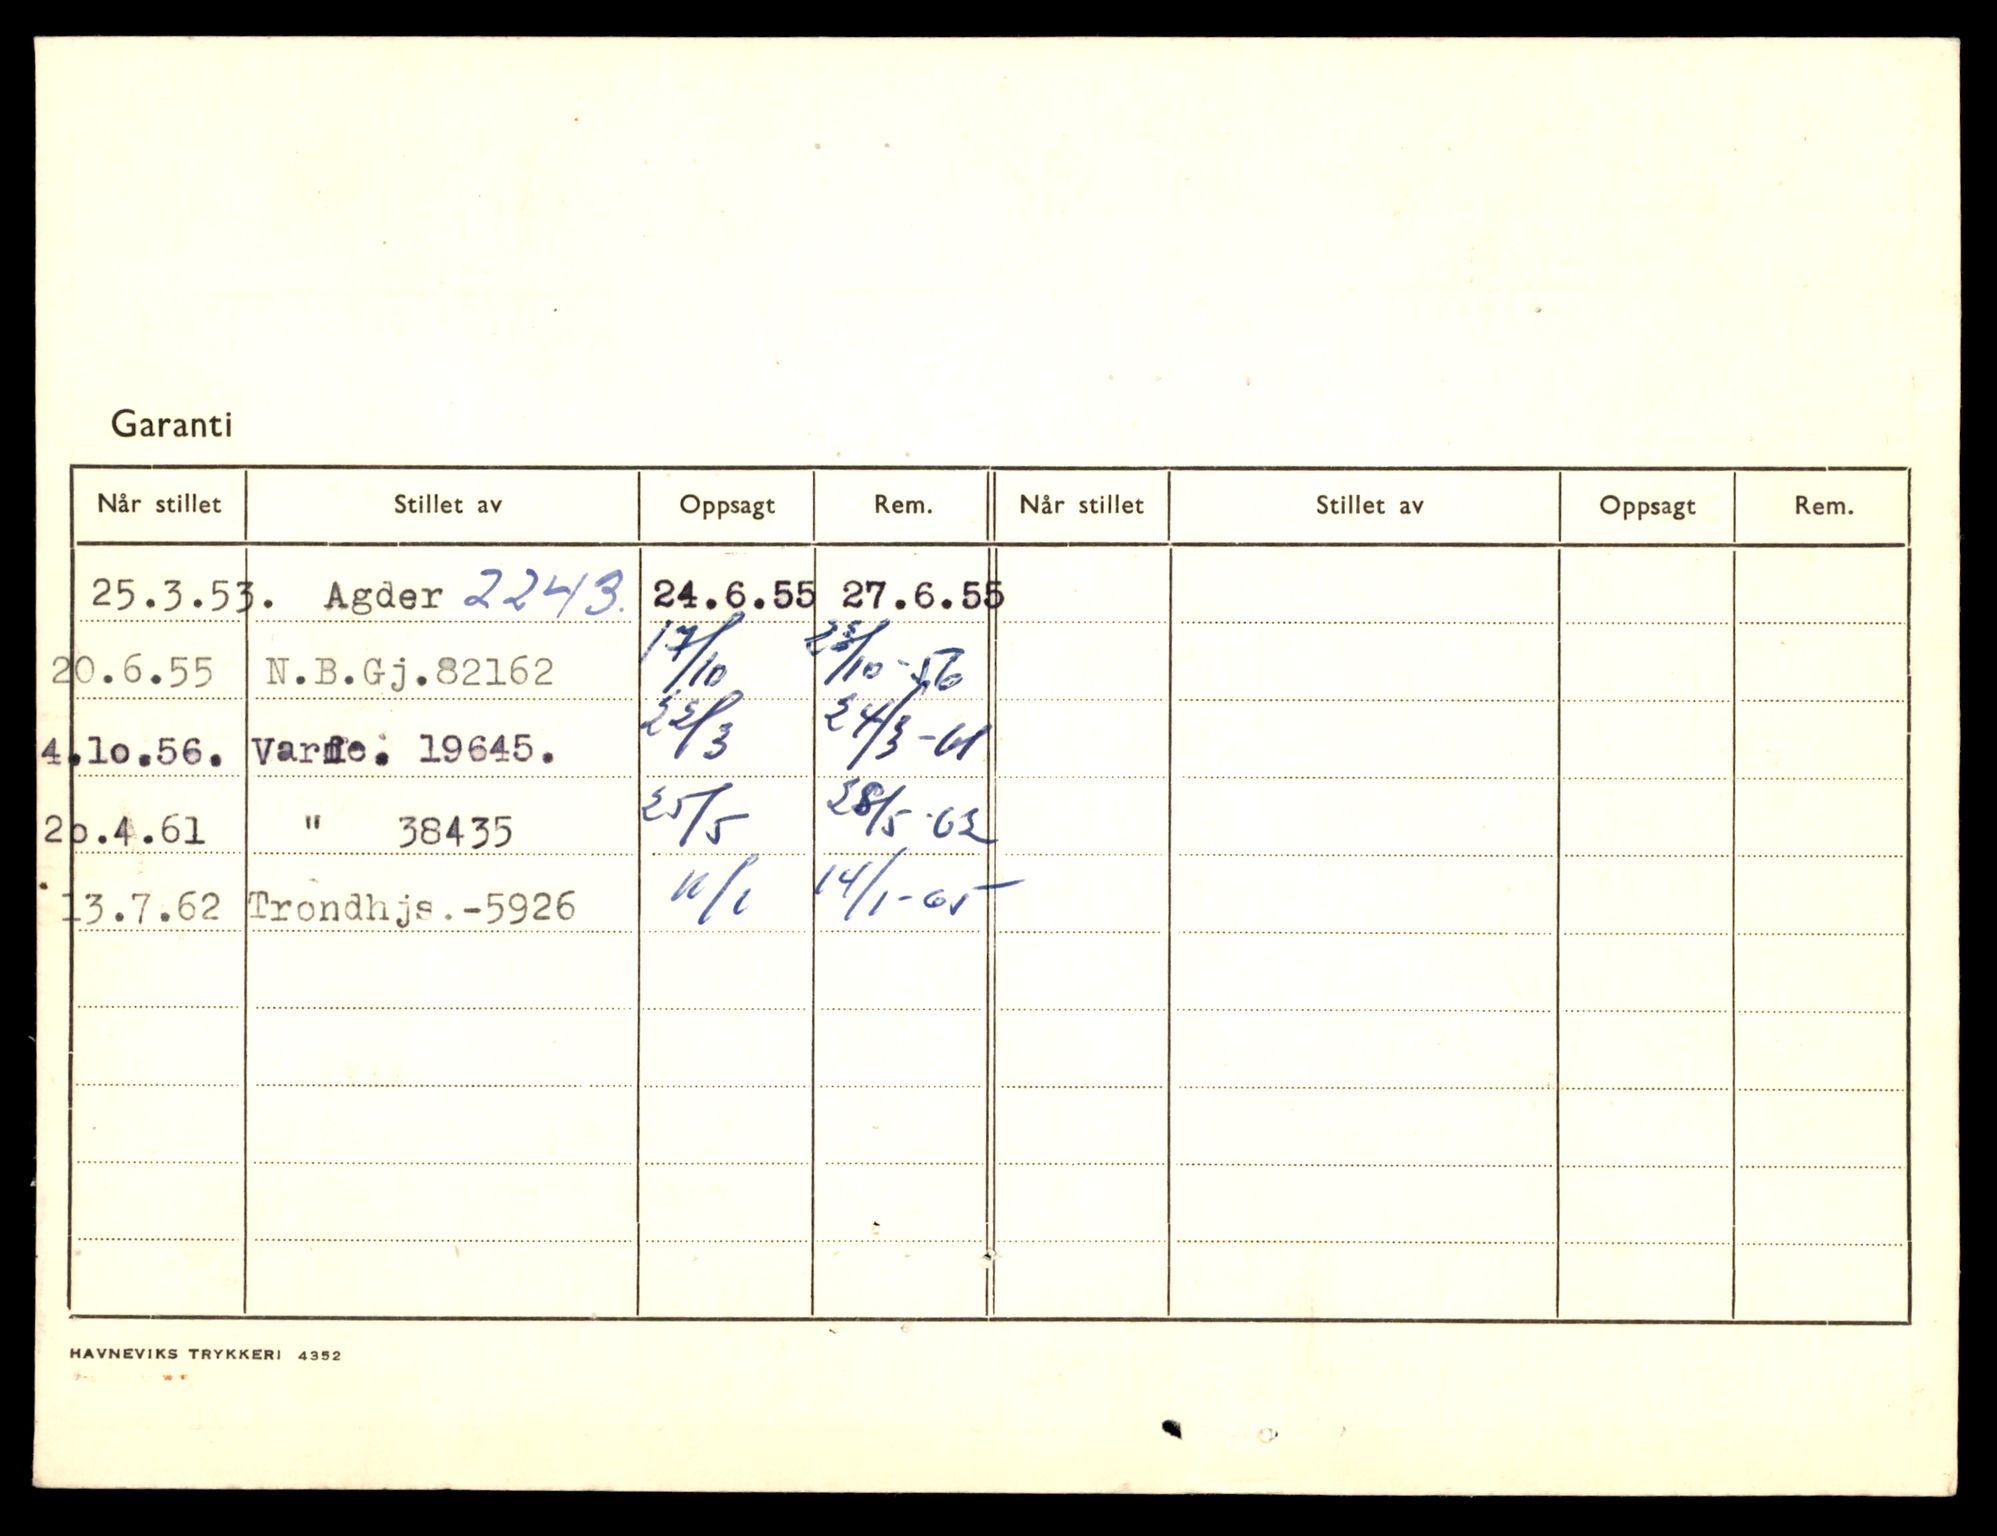 Garanti
Når stillet Stillet av Oppsagt Rem. Når stillet Stillet av Oppsagt Rem.
25.3.53. Agder 2243. 24.6.55 27.6.55
20.6.55 N.B.Gj.82162 17/10 23/10-56
4.1o.56. Varde. 19645. 22/3 24/3-61
2o.4.61 " 38435 25/5 28/5-62
13.7.62 Trondhjs.-5926 11/1 14/1-65
HAVNEVIKS TRYKKERI 4352